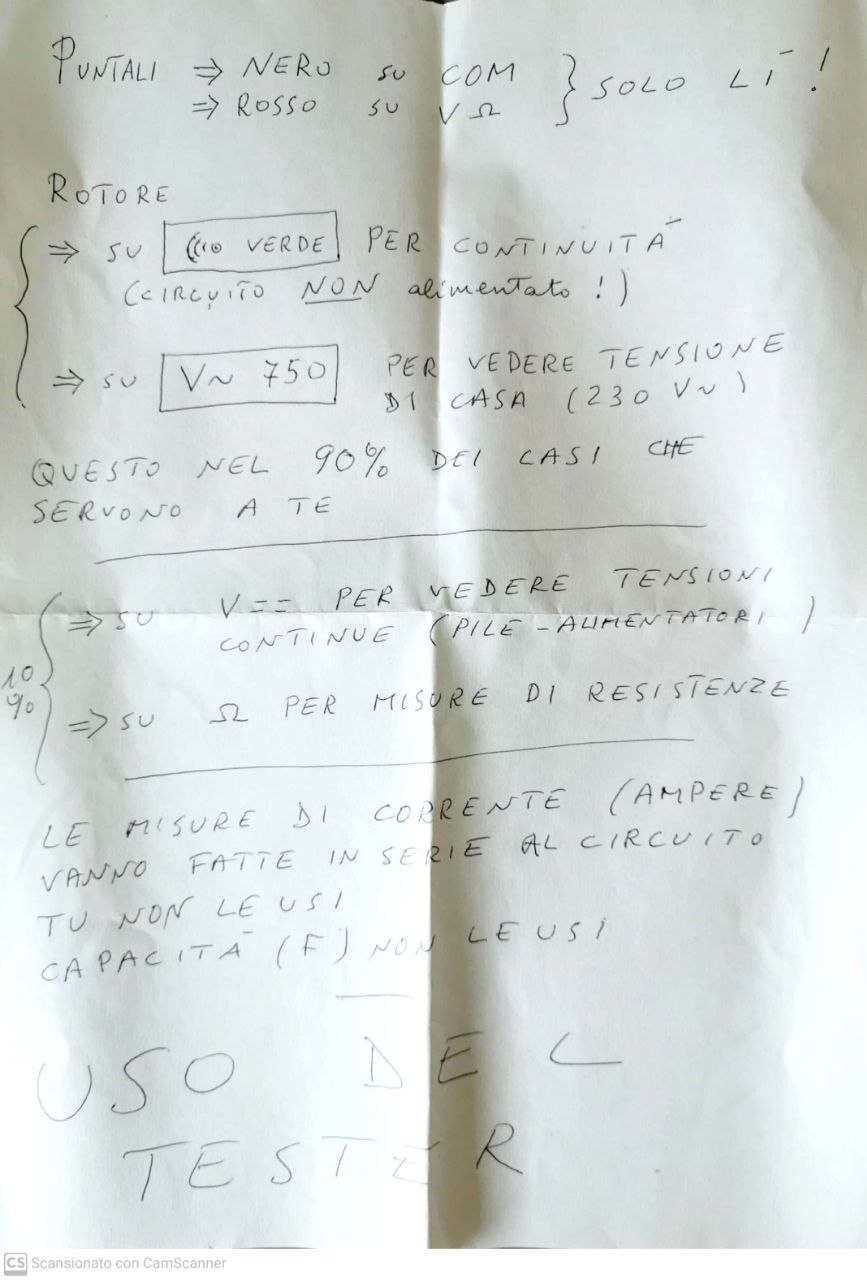 PUNTALI ⇒ NERO SU COM } SOLO LÌ!
⇒ ROSSO SU V Ω
ROTORE
⇒ SU ((•o VERDE PER CONTINUITÀ
(CIRCUITO NON alimentato!)
⇒ SU V~ 750 PER VEDERE TENSIONE
DI CASA (230 V~)
QUESTO NEL 90% DEI CASI CHE
SERVONO A TE
10 % ⇒ SU V== PER VEDERE TENSIONI
CONTINUE (PILE - ALIMENTATORI)
⇒ SU Ω PER MISURE DI RESISTENZE
LE MISURE DI CORRENTE (AMPERE)
VANNO FATTE IN SERIE AL CIRCUITO
TU NON LE USI
CAPACITÀ (F) NON LE USI
USO DEL
TESTER
CS Scansionato con CamScanner